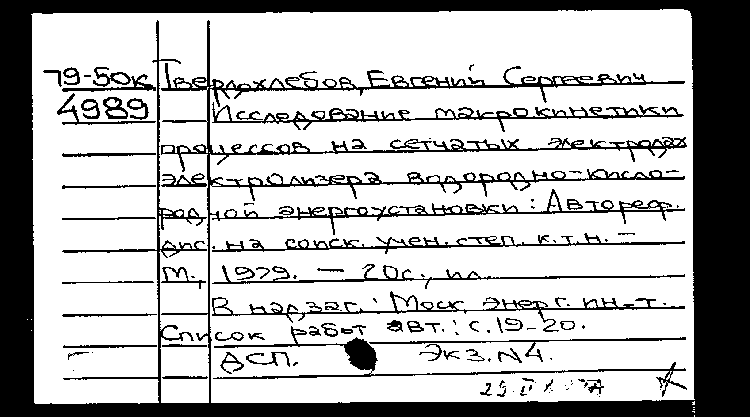 79-50к Твердохлебов, Евгений Сергеевич
4989 Исследование макрокинетики
процессов на сетчатых электродах
электролизера водородно-кисло-
родной энергоустановки: Автореф.
дис. на соиск. учен. степ. к.т.н. –
М., 1979. – 20с., ил.
В надзаг.: Моск. энерг. ин-т.
Список работ авт.: с.19-20.
ДСП. Экз.N4.